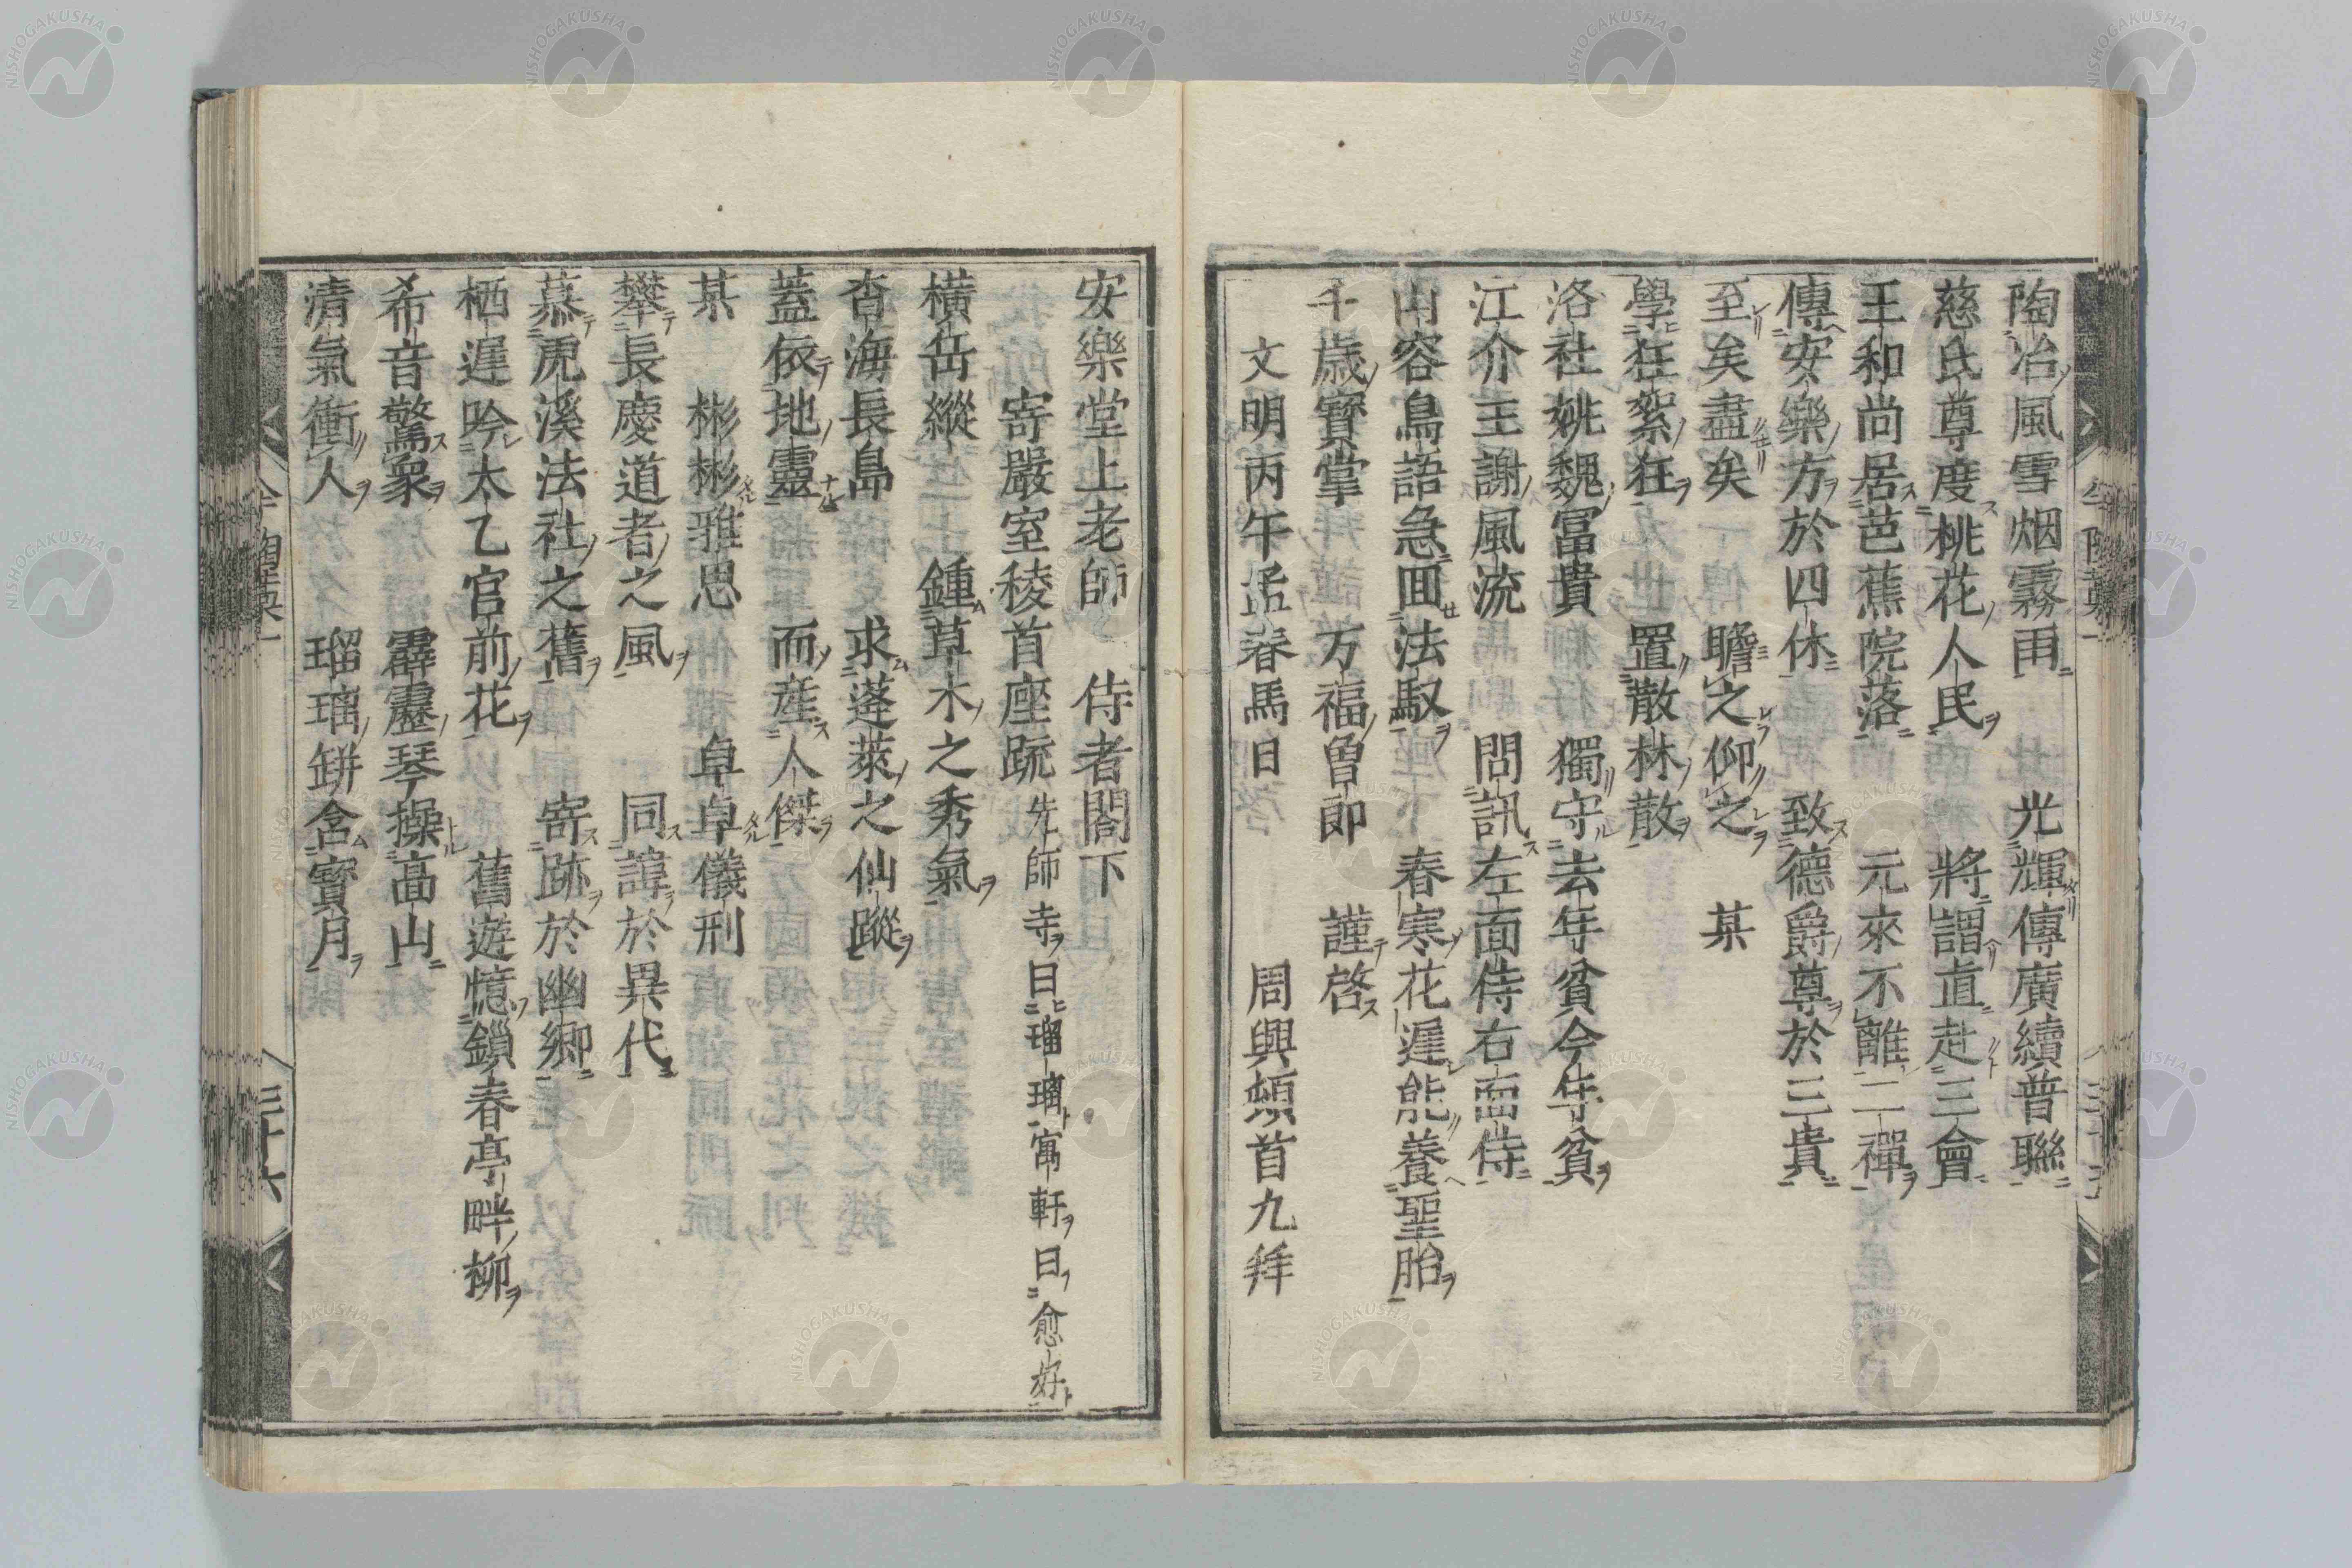 陶冶風雪烟霧雨　光輝傳廣續普聯
慈氏尊度桃花人民　將謂直赴三會
王和尚居芭蕉院落　元來不離二禪
傳安樂方於四休　致德爵尊於三貴
至矣盡矣　瞻之仰之　某
學狂絮狂　置散林散
洛社姚魏冨貴　獨守去年貧今年貧
江介王謝風流　問訊左面侍右面侍
山容鳥語急回法馭　春寒花遲能養聖胎
千歳寶掌　万福曽郎　謹啓
文明丙午孟春馬日　周興頓首九拜
安樂堂上老師　侍者閣下
寄嚴室稜首座疏 先師寺曰瑠璃寓軒曰愈好
橫岳縱　鍾草木之秀氣
杳海長島　求蓬萊之仙蹤
蓋依地靈　而産人傑
某　彬彬雅思　阜阜儀刑
攀長慶道者之風　同諱於異代
慕虎溪法社之舊　寄跡於幽鄉
栖遲吟太乙宮前花　舊遊憶鎖春亭畔柳
希音驚衆　霹靂琴操高山
清氣衝人　瑠璃缾含寶月
三十六